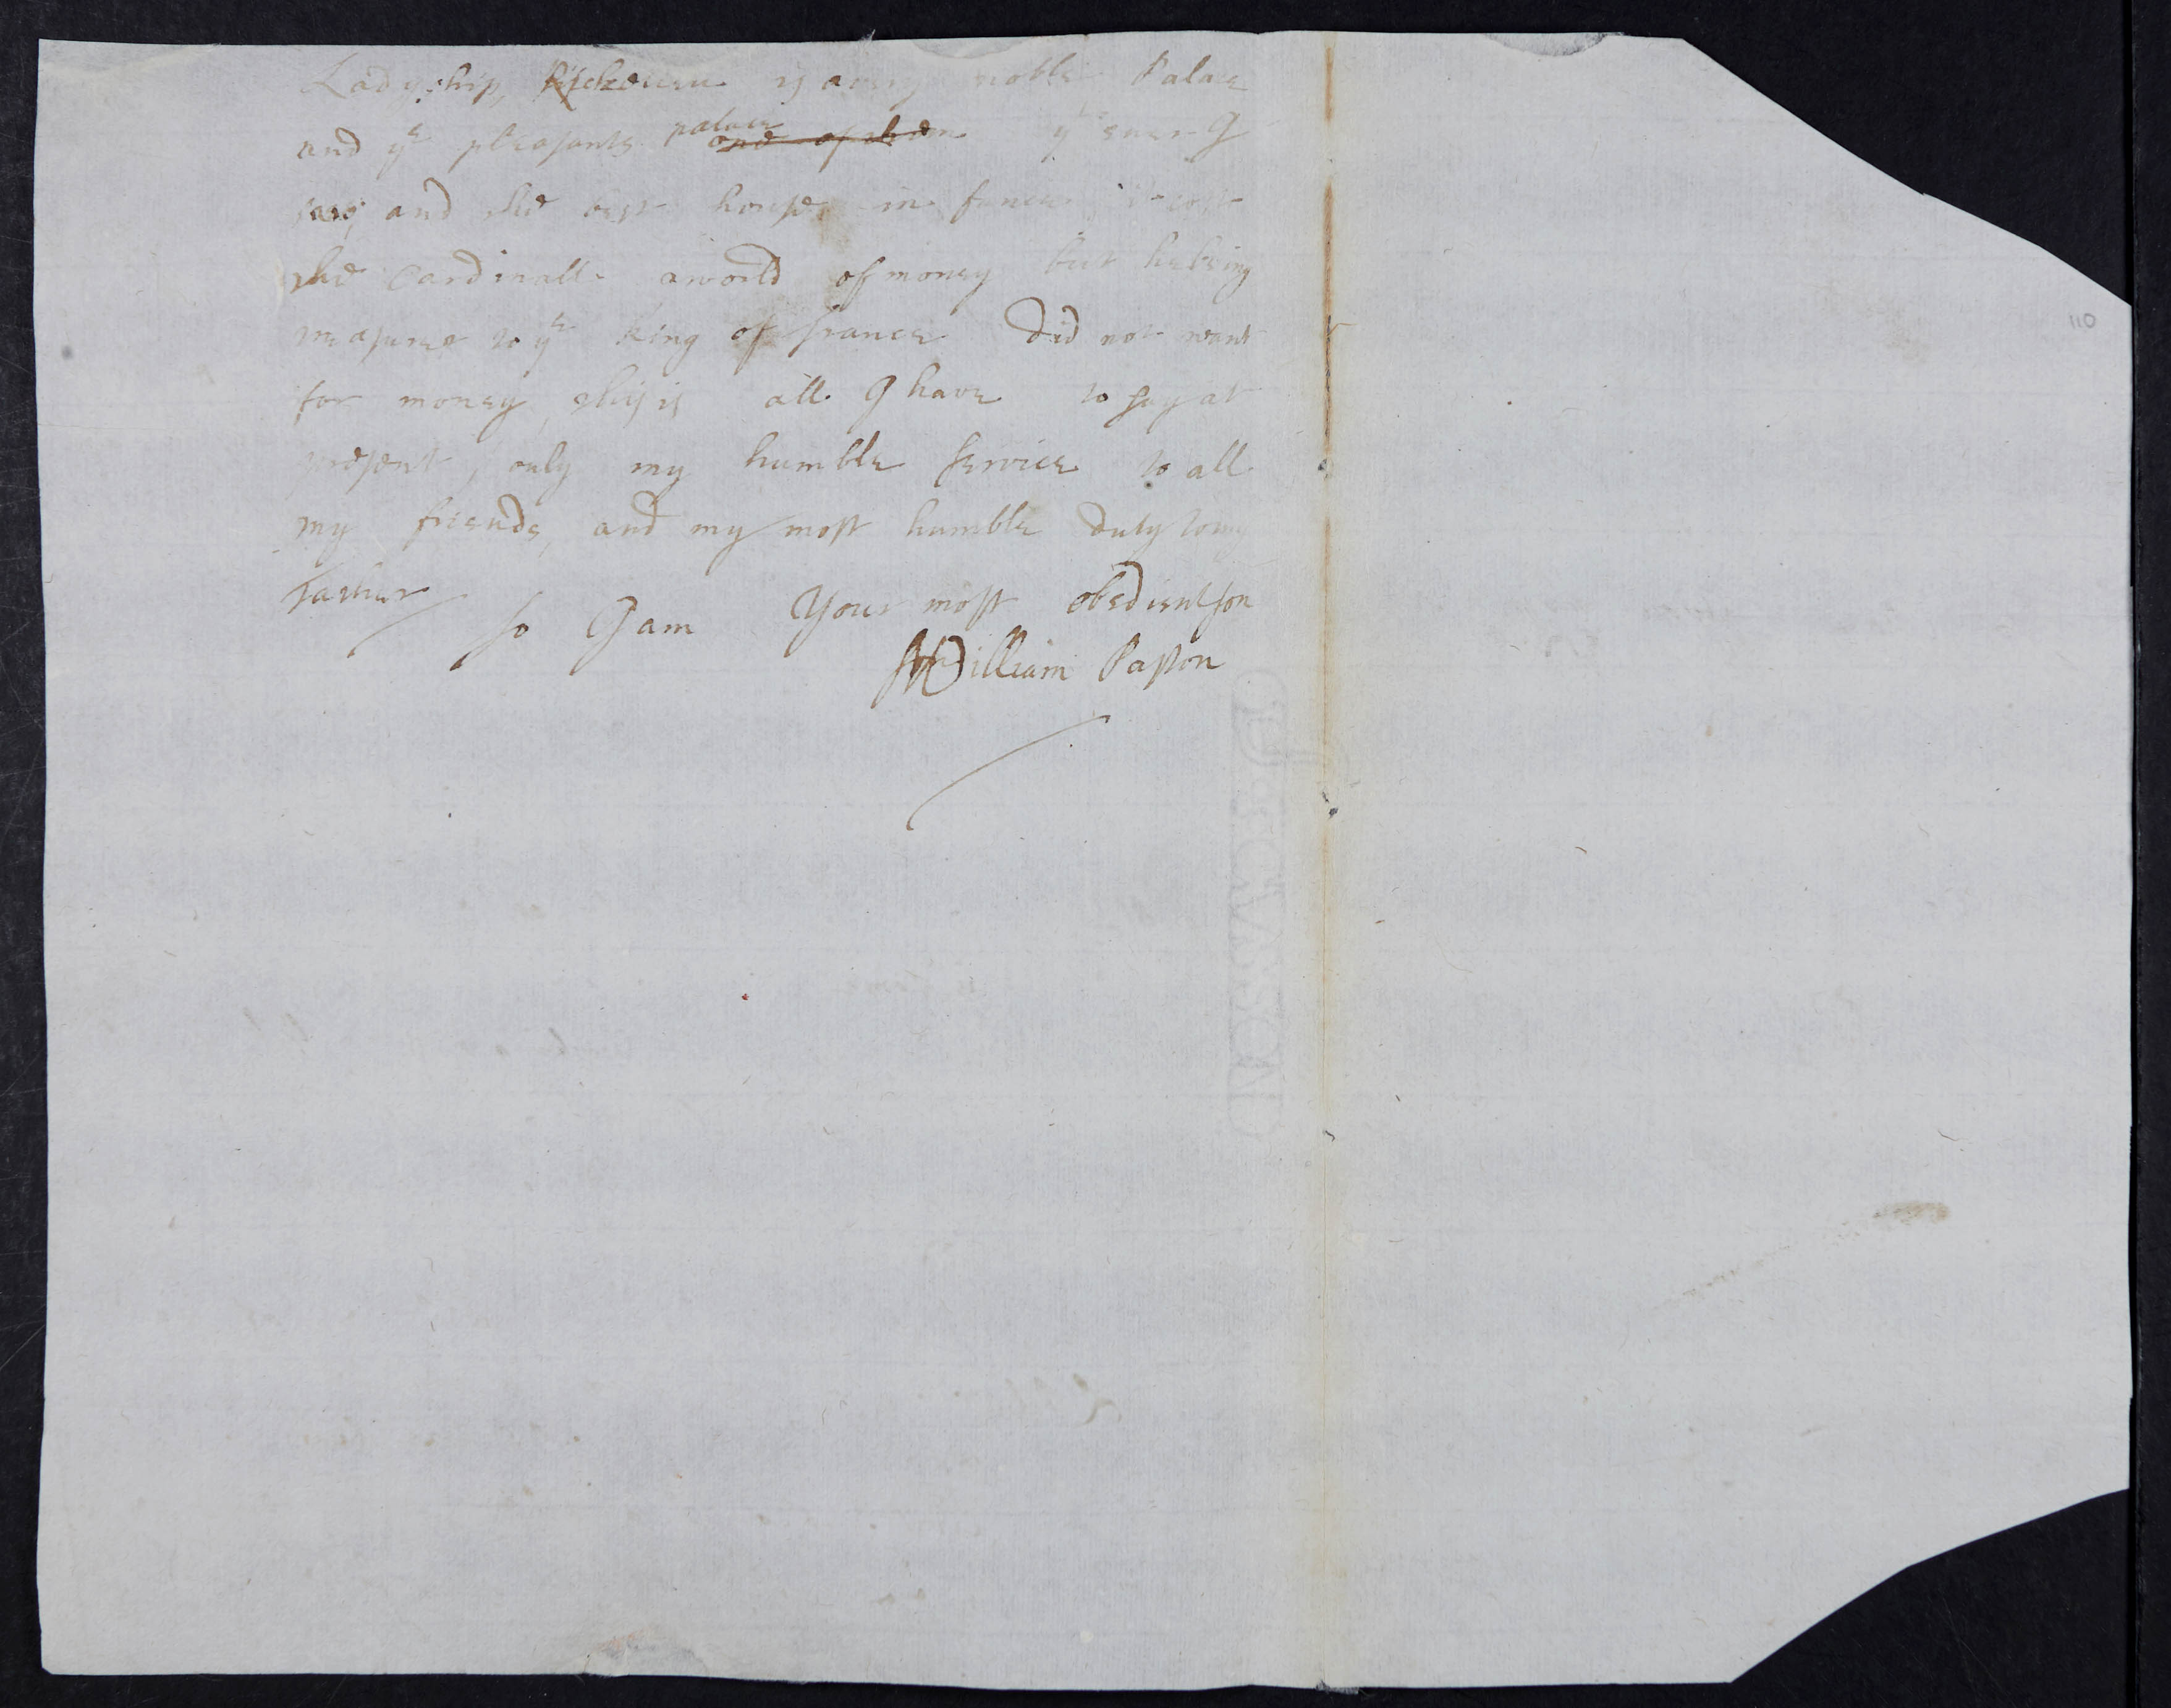 Ladyship, Richeleu is a very noble Palace
and yͤ pleasants palace one of them yͭ ever I
saw, and the best house in france it cost
the Cardinall a world of money but he being
treasurer to yͤ King of france did not want
for money, this is all I have to say at
present, only my humble service to all
my friends, and my most humble duty to my
father so I am Your most obedient son
William Paston
110